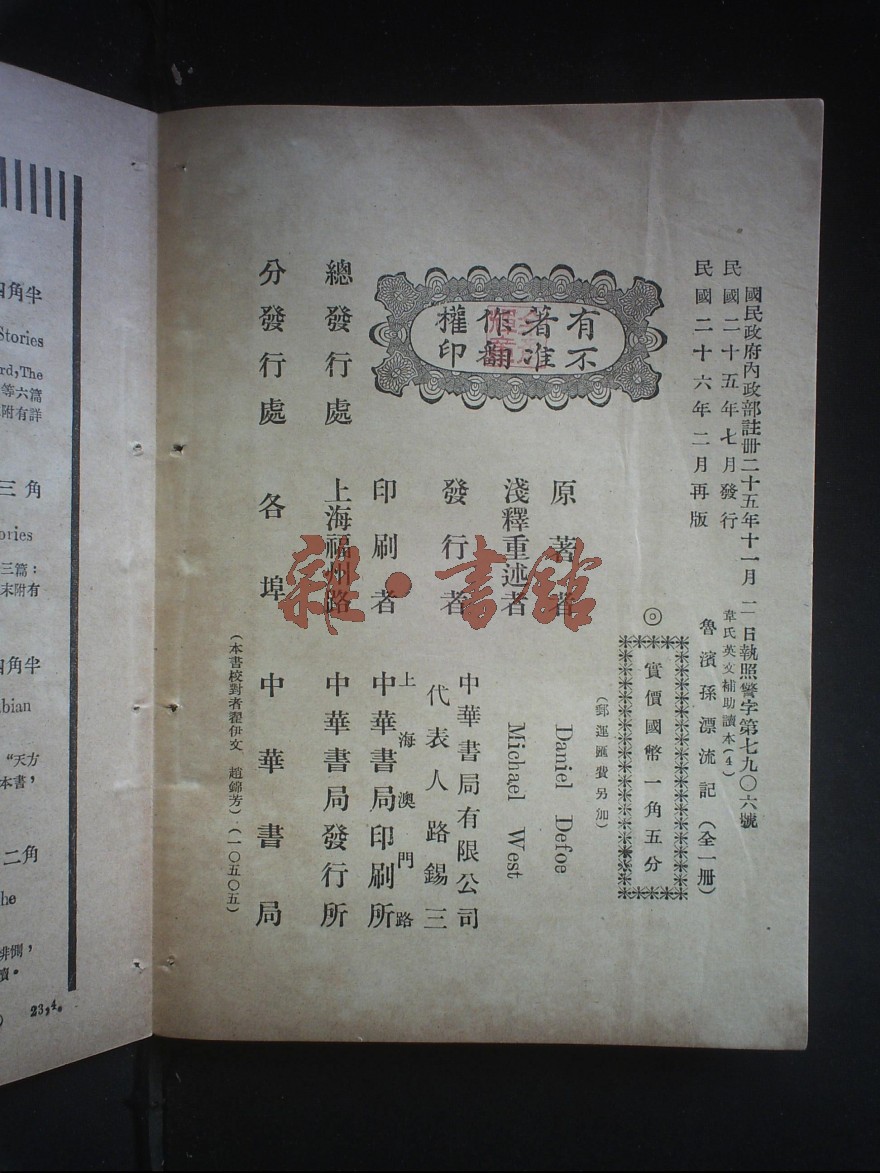 國民政府內政部註冊二十五年十一月二日執照警字第七九〇六號
民國二十五年七月發行
民國二十六年二月再版
韋氏英文補助讀本(4)
魯濱孫漂流記(全一冊)
◎實價國幣一角五分
(郵運匯費另加)
有著作權
不准翻印
原著者 Daniel Defoe
淺釋重述者 Michael West
發行者 中華書局有限公司
代表人路錫三
印刷者 上海澳門路
中華書局印刷所
總發行處 上海福州路 中華書局發行所
分發行處 各埠中華書局
(本書校對者瞿伊文 趙錦芳)(一〇五〇五)
雜·書館
四角半
Stories
rd, The
等六篇
附有詳
三角
ories
三篇:
末附有
四角半
bian
“天方
本書,
二角
he
排惻,
讀。
23,4。